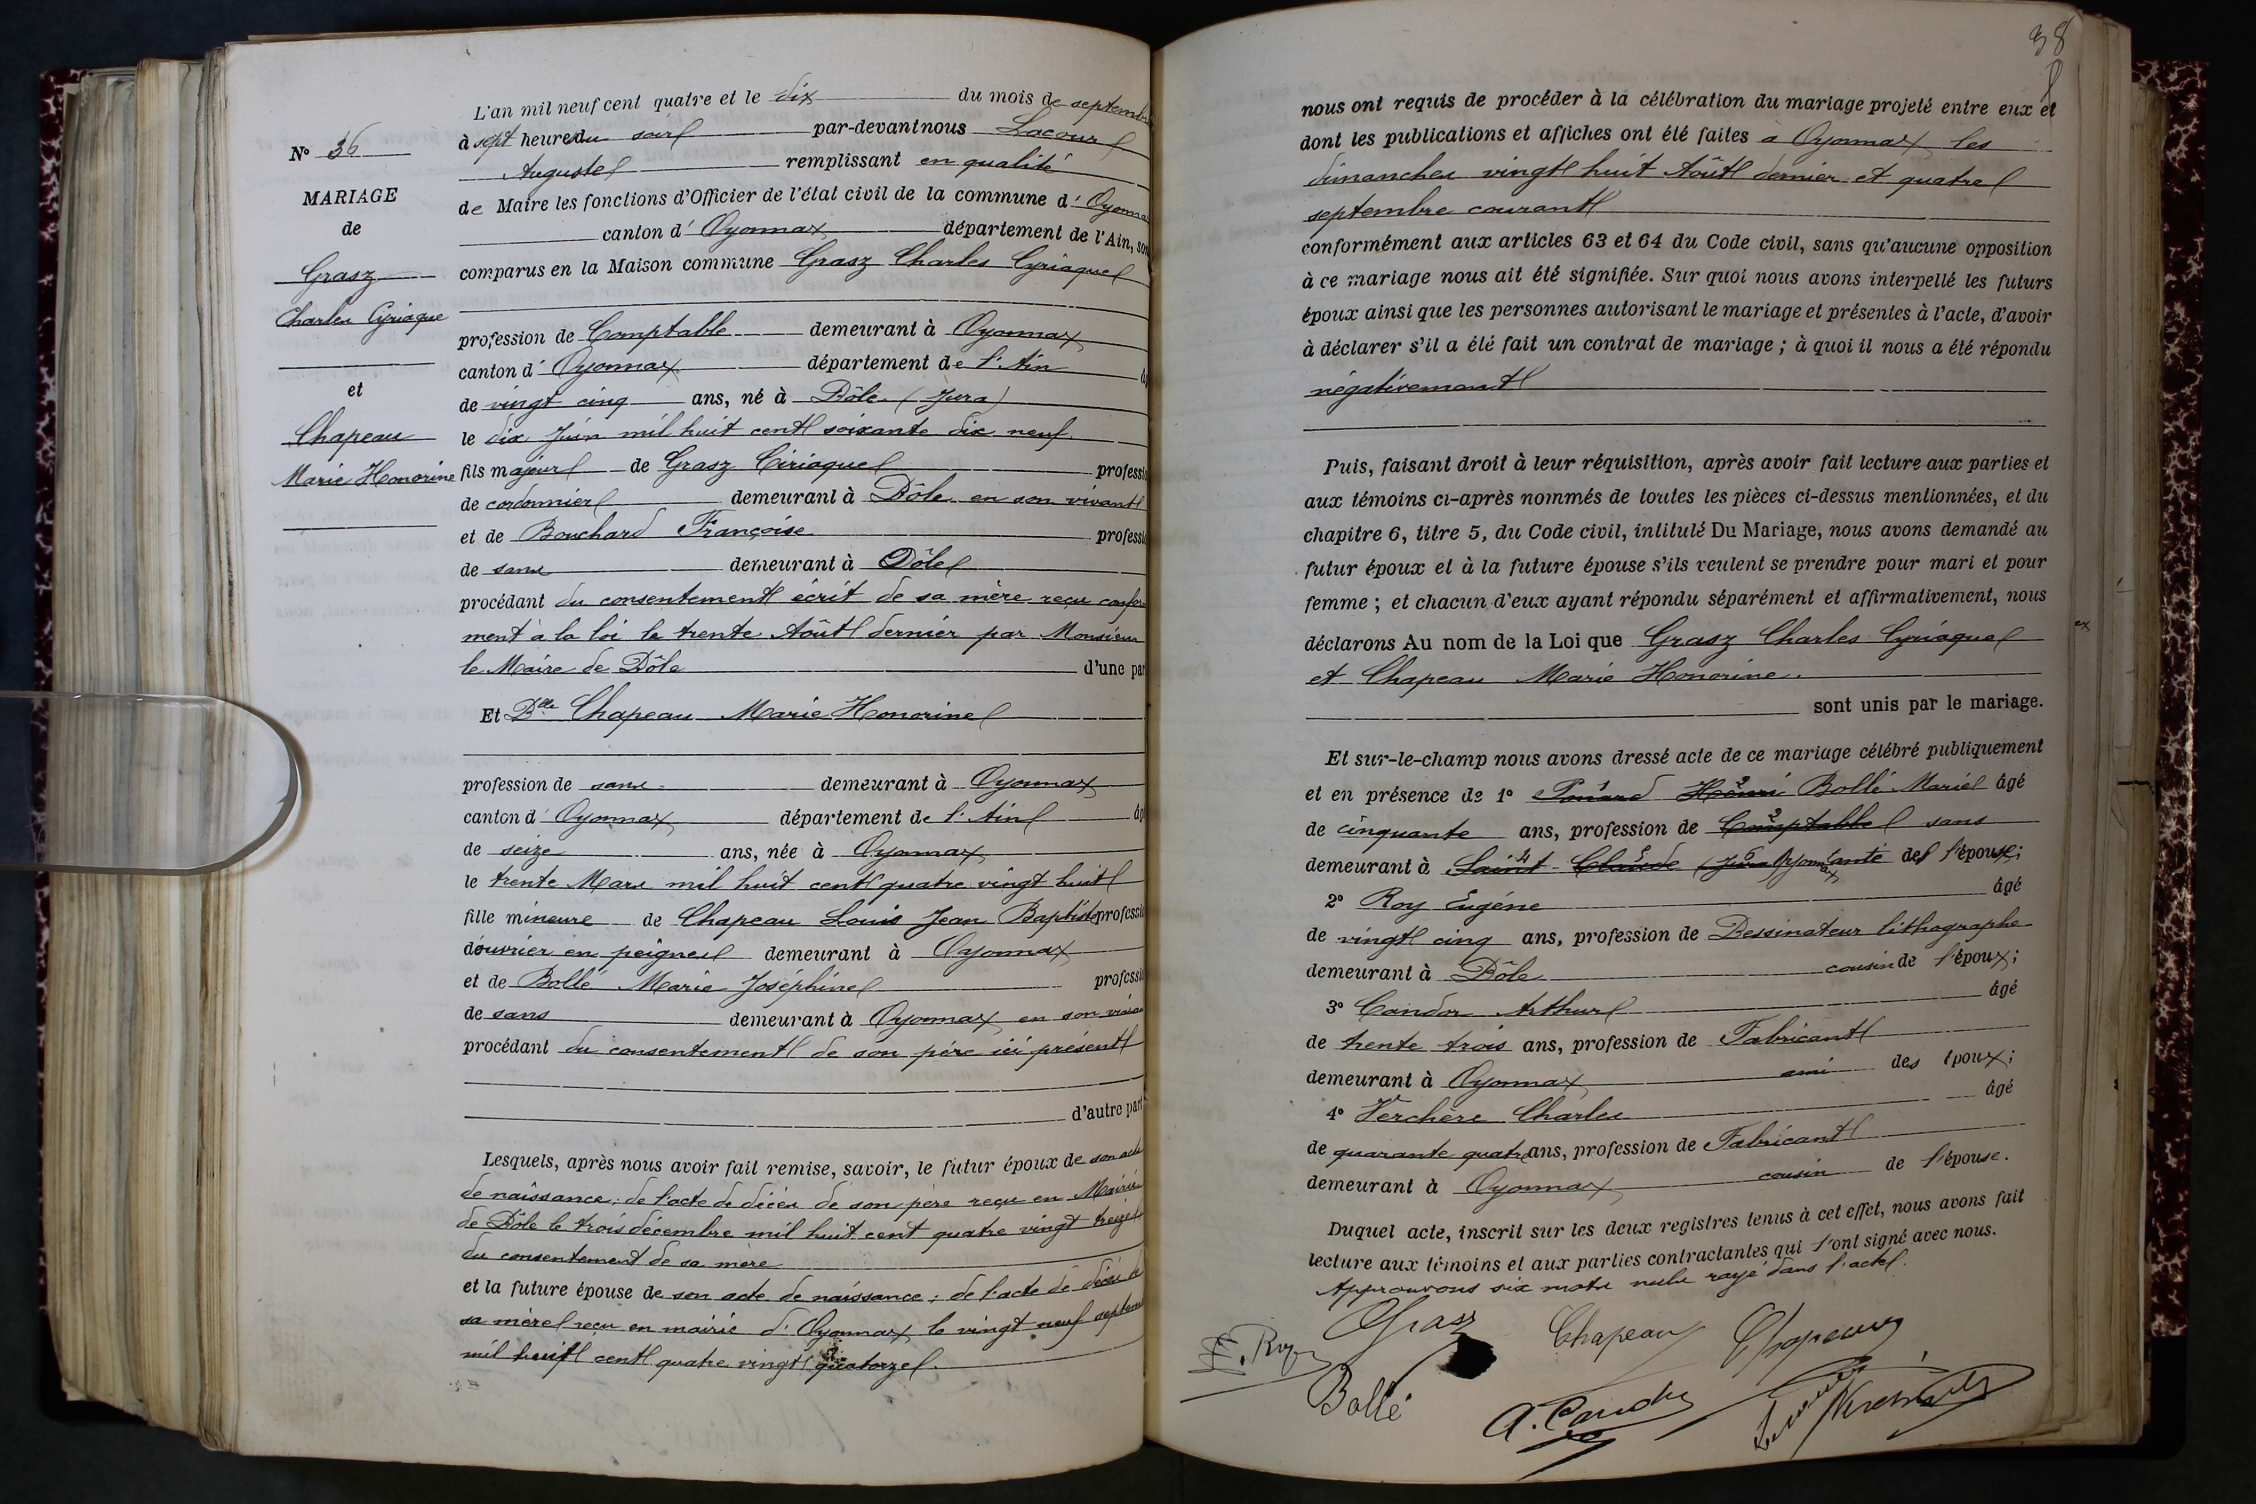 N° 36
MARIAGE
de
Grasz
Charles Cyriaque
et
Chapeau
Marie Honorine
L'an mil neuf cent quatre et le dix du mois de septembre
à sept heures du soir par-devant nous Lacour
Auguste remplissant en qualité
de Maire les fonctions d'Officier de l'état civil de la commune d' Oyonnax
canton d' Oyonnax département de l'Ain, son
comparus en la Maison commune Grasz Charles Cyriaque
profession de Comptable demeurant à Oyonnax
canton d' Oyonnax département de l'Ain
de vingt cinq ans, né à Dôle (Jura)
le dix Juin mil huit cent soixante dix neuf
fils majeur de Grasz Ciriaque professio
de cordonnier demeurant à Dôle en son vivant
et de Bouchard Françoise professio
de sans demeurant à Dôle
procédant du consentement écrit de sa mère reçu confor
ment à la loi le trente Août dernier par Monsieur
le Maire de Dôle d'une par
Et Dlle Chapeau Marie Honorine
profession de sans demeurant à Oyonnax
canton d' Oyonnax département de l'Ain âg
de seize ans, née à Oyonnax
le trente Mars mil huit cent quatre vingt huit
fille mineure de Chapeau Louis Jean Baptiste professio
d'ouvrier en peignes demeurant à Oyonnax
et de Bollé Marie Joséphine professio
de sans demeurant à Oyonnax en son vivan
procédant du consentement de son père ici présent
d'autre part
Lesquels, après nous avoir fait remise, savoir, le futur époux de son acte
de naissance; de l'acte de décès de son père reçu en Mairie
de Dôle le trois décembre mil huit cent quatre vingt treize
du consentement de sa mère
et la future épouse de son acte de naissance; de l'acte de décès de
sa mère reçu en mairie d' Oyonnax le vingt neuf septem
mil huit cent quatre vingt quatorze.
38
nous ont requis de procéder à la célébration du mariage projeté entre eux et
dont les publications et affiches ont été faites à Oyonnax les
dimanches vingt huit Août dernier et quatre
septembre courant
conformément aux articles 63 et 64 du Code civil, sans qu'aucune opposition
à ce mariage nous ait été signifiée. Sur quoi nous avons interpellé les futurs
époux ainsi que les personnes autorisant le mariage et présentes à l'acte, d'avoir
à déclarer s'il a été fait un contrat de mariage; à quoi il nous a été répondu
négativement
Puis, faisant droit à leur réquisition, après avoir fait lecture aux parties et
aux témoins ci-après nommés de toutes les pièces ci-dessus mentionnées, et du
chapitre 6, titre 5, du Code civil, intitulé Du Mariage, nous avons demandé au
futur époux et à la future épouse s'ils veulent se prendre pour mari et pour
femme; et chacun d'eux ayant répondu séparément et affirmativement, nous
déclarons Au nom de la Loi que Grasz Charles Cyriaque
et Chapeau Marie Honorine.
sont unis par le mariage.
Et sur-le-champ nous avons dressé acte de ce mariage célébré publiquement
et en présence de 1° Ponard Henri Bollé Marie âgé
de cinquante ans, profession de Comptable sans
demeurant à Saint Claude (Jura Oyonnax tante de l'épouse;
2° Roy Eugène âgé
de vingt cinq ans, profession de Dessinateur lithographe
demeurant à Dôle cousin de l'époux;
3° Candor Arthur âgé
de trente trois ans, profession de Fabricant
demeurant à Oyonnax ami des époux;
4° Verchère Charles âgé
de quarante quatre ans, profession de Fabricant
demeurant à Oyonnax cousin de l'épouse.
Duquel acte, inscrit sur les deux registres tenus à cet effet, nous avons fait
lecture aux témoins et aux parties contractantes qui l'ont signé avec nous.
Approuvons six mots nuls rayé dans l'acte.
Grasz Chapeau Chapeau
E. Roy
Bollé